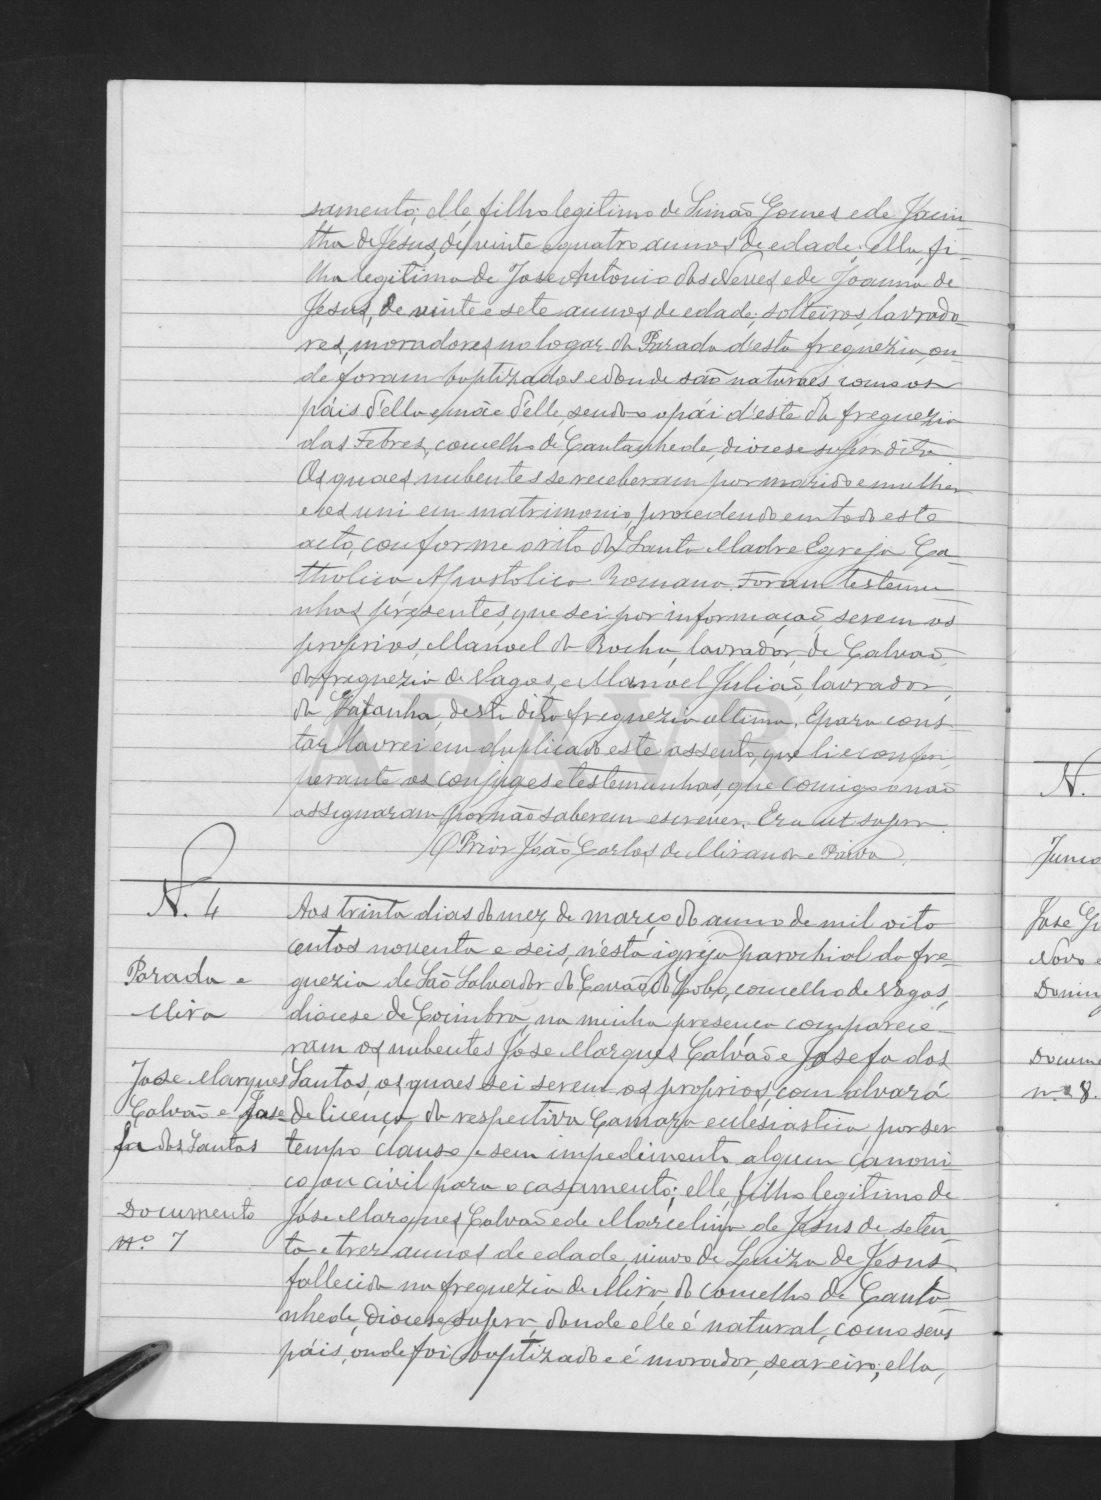 samento; elle filho legitimo de Simão Gomes e de Jacin-
tha de Jesus, de vinte e quatro annos de edade; ella, fi-
lha legitima de José Antonio das Neves e de Joanna de
Jesus, de vinte e sete annos de edade; solteiros, lavrado-
res, moradores no logar da Parada d'esta freguezia, on-
de foram baptizados e donde são naturaes como os
páis d'ella e mãe d'elle, sendo o pái d'este da freguezia
das Febres, concelho de Cantanhede, diocese supra dita.
Os quaes nubentes se receberam por marido e mulher
e os uni em matrimonio, procedendo em todo este
acto, conforme o rito da Santa Madre Egreja Ca-
tholica, Apostolica Romana. Foram testemu-
nhas presentes, que sei por informação serem os
proprios, Manoel da Rocha, lavrador, de Calvão,
da freguezia de Vagos, e Manoel Julião, lavrador,
da Gafanha, desta dita freguezia ultima. E para cons-
tar lavrei em duplicado este assento, que li e conferi
perante os conjuges e testemunhas, que comigo não
assignaram por não saberem escrever. Era ut supra.
O Prior João Carlos de Miranda e Paiva.
N. 4
Parada e
Mira
José Marques
Galvão e Jose-
fa dos Santos
Documento
nº 7
Aos trinta dias do mez de março do anno de mil oito
centos noventa e seis, n'esta igreja parochial da fre-
guezia de São Salvador do Covão do Lobo, concelho de Vagos,
diocese de Coimbra, na minha presença comparece-
ram os nubentes José Marques Galvão e Josefa dos
Santos, os quaes sei serem os proprios, com alvará
de licença da respectiva Camara ecclesiastica, por ser
tempo clauso e sem impedimento algum canoni-
co ou civil para o casamento; elle, filho legitimo de
José Marques Galvão e de Marcelina de Jesus de seten-
ta e trez annos de edade, viuvo de Luiza de Jesus
fallecida na freguezia de Mira, do concelho de Canta-
nhede, diocese supra, donde elle é natural, como seus
páis, onde foi baptizado e é morador, seareiro; ella,
N.
Junco
José G
Novo e
Doming
Docume
nº 8.
ADAVR